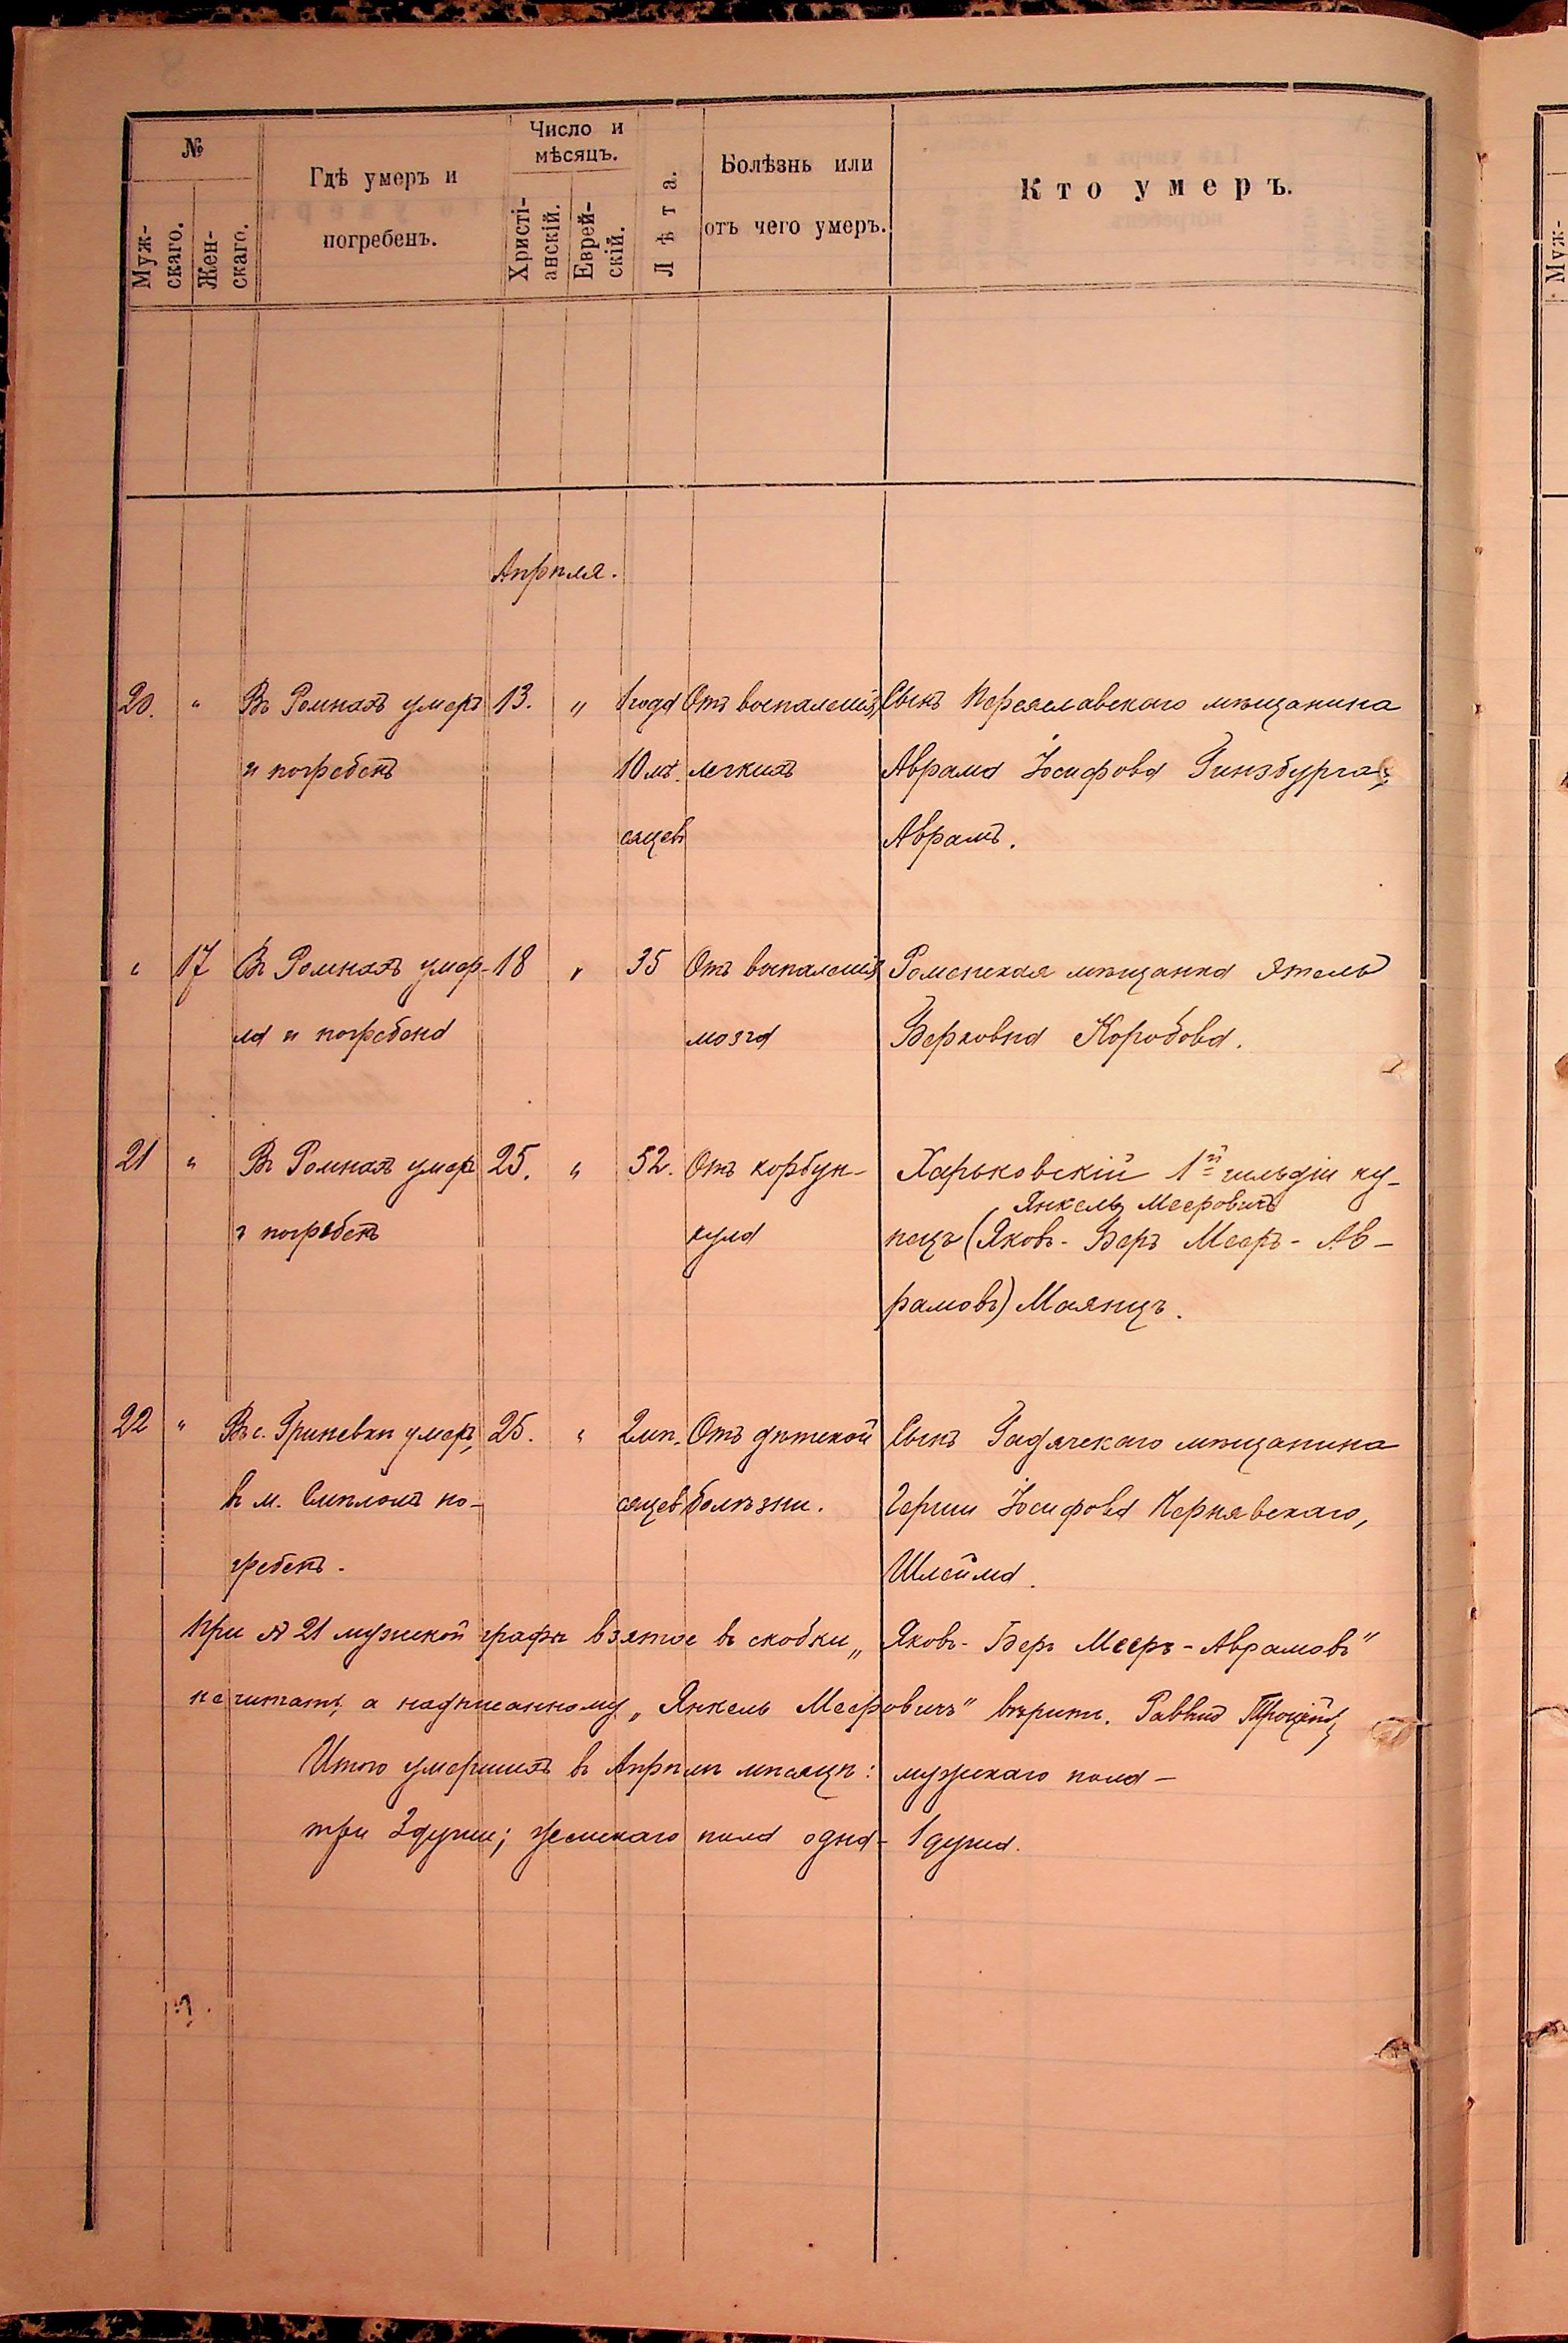 №
Число и
мѣсяцъ.
Муж-
скаго.
Жен-
скаго.
Гдѣ умеръ и
погребенъ.
Христі-
анскій.
Еврей-
скій.
Лѣта.
Болѣзнь или
отъ чего умеръ.
Кто умеръ.
Апрѣля.
20. " Въ Ромнахъ умеръ 13. " 1 года Отъ воспаленія Сынъ Переяславскаго мѣщанина
и погребенъ 10 мѣ- легкихъ Аврама Іосифова Гинзбурга,
сяцевъ Аврамъ.
" 17 Въ Ромнахъ умер- 18 " 35 Отъ воспаленія Роменская мѣщанка Этель
ла и погребена мозга Берковна Коробова.
21 " Въ Ромнахъ умеръ 25. " 52. Отъ карбун- Харьковскій 1й гильдіи ку-
Янкель Мееровичъ
и погребенъ кула пецъ (Яковъ-Беръ Мееръ-Ав-
рамовъ) Маянцъ.
22 " Въ с. Гриневкѣ умеръ, 25. " 2 мѣ- Отъ дѣтской Сынъ Гадячскаго мѣщанина
въ м. Смѣломъ по- сяцевъ болѣзни. Герши Іосифова Чернявскаго,
гребенъ. Шлёйма.
При № 21 мужской графы взятое въ скобки „Яковъ-Беръ Мееръ-Аврамовъ"
не читать, а надписанному „Янкель Мееровичъ" вѣрить. Раввинъ
Итого умершихъ въ Апрѣлѣ мѣсяцѣ: мужскаго пола —
три 3 души; женскаго пола одна - 1 душа.
Муж-